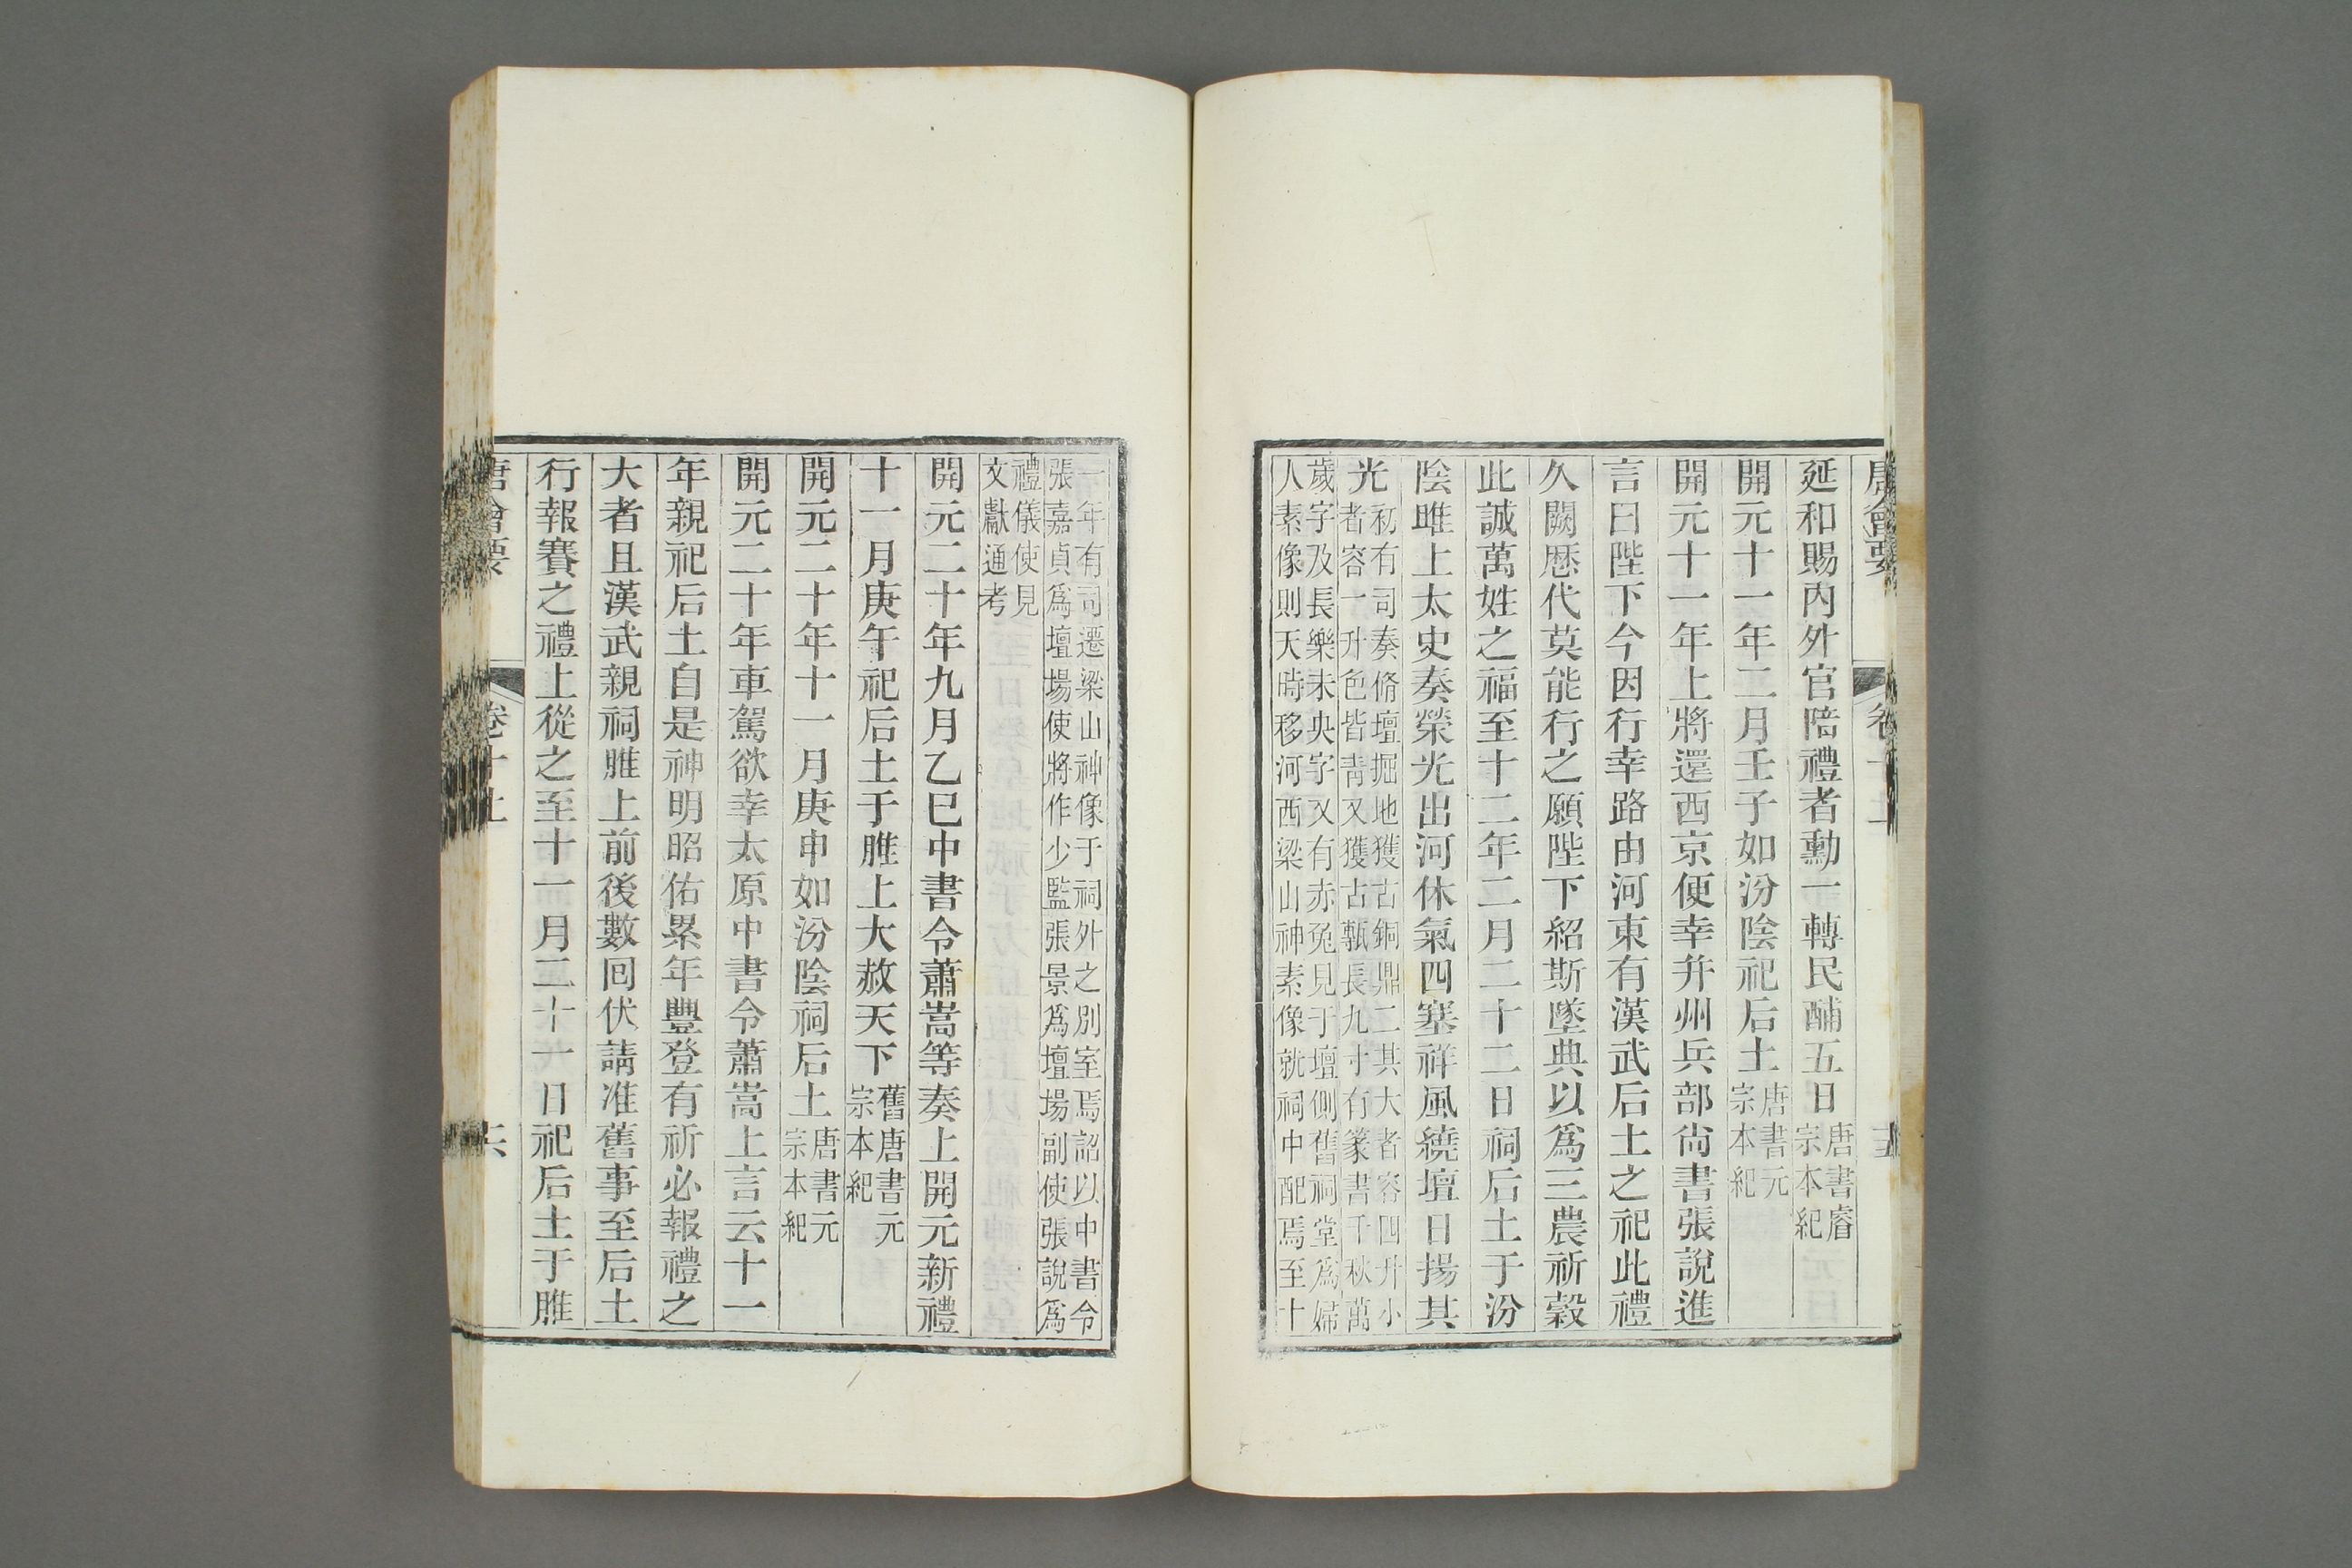 唐會要 卷十上
延和賜內外官陪禮者勳一轉民酺五日唐書睿宗本紀
開元十一年二月壬子如汾陰祀后土唐書元宗本紀
開元十一年上將還西京便幸幷州兵部尙書張說進
言曰陛下今因行幸路由河東有漢武后土之祀此禮
久闕歷代莫能行之願陛下紹斯墜典以爲三農祈穀
此誠萬姓之福至十二年二月二十二日祠后土于汾
陰脽上太史奏榮光出河休氣四塞祥風繞壇日揚其
光初有司奏脩壇掘地獲古銅鼎二其大者容四升小
者容一升色皆靑又獲古甎長九寸有篆書千秋萬
歲字及長樂未央字又有赤兔見于壇側舊祠堂爲婦
人素像則天時移河西梁山神素像就祠中配焉至十
一年有司遷梁山神像于祠外之別室焉詔以中書令
張嘉貞爲壇場使將作少監張景爲壇場副使張說爲
禮儀使見
文獻通考
開元二十年九月乙巳中書令蕭嵩等奏上開元新禮
十一月庚午祀后土于脽上大赦天下舊唐書元宗本紀
開元二十年十一月庚申如汾陰祠后土唐書元宗本紀
開元二十年車駕欲幸太原中書令蕭嵩上言云十一
年親祀后土自是神明昭佑累年豐登有祈必報禮之
大者且漢武親祠脽上前後數回伏請准舊事至后土
行報賽之禮上從之至十一月二十一日祀后土于脽
唐會要 卷十上